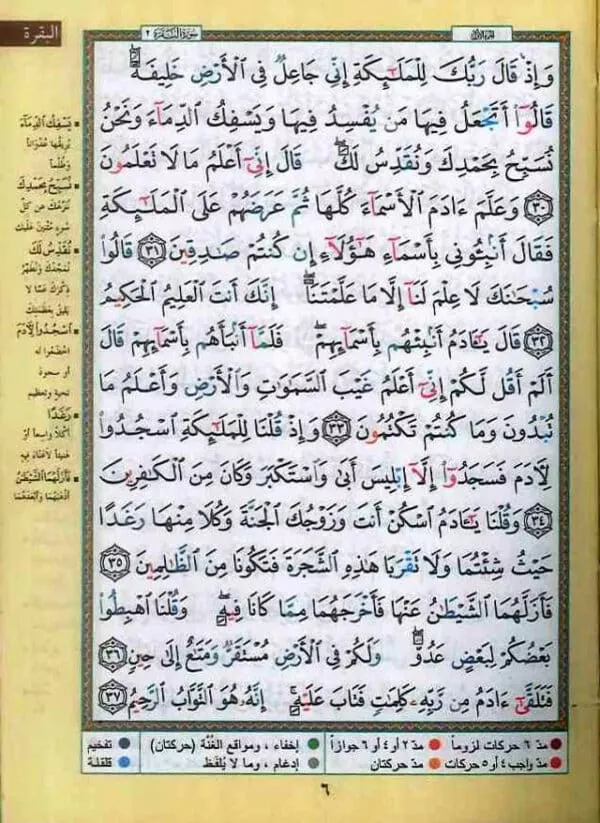 الجزء الأول
سورة البقرة ٢
البقرة
وَإِذْ قَالَ رَبُّكَ لِلْمَلَٰٓئِكَةِ إِنِّى جَاعِلٌ فِى ٱلْأَرْضِ خَلِيفَةً ۖ
قَالُوٓا۟ أَتَجْعَلُ فِيهَا مَن يُفْسِدُ فِيهَا وَيَسْفِكُ ٱلدِّمَآءَ وَنَحْنُ
نُسَبِّحُ بِحَمْدِكَ وَنُقَدِّسُ لَكَ ۖ قَالَ إِنِّىٓ أَعْلَمُ مَا لَا تَعْلَمُونَ
٣٠ وَعَلَّمَ ءَادَمَ ٱلْأَسْمَآءَ كُلَّهَا ثُمَّ عَرَضَهُمْ عَلَى ٱلْمَلَٰٓئِكَةِ
فَقَالَ أَنۢبِـُٔونِى بِأَسْمَآءِ هَٰٓؤُلَآءِ إِن كُنتُمْ صَٰدِقِينَ ٣١ قَالُوا۟
سُبْحَٰنَكَ لَا عِلْمَ لَنَآ إِلَّا مَا عَلَّمْتَنَآ ۖ إِنَّكَ أَنتَ ٱلْعَلِيمُ ٱلْحَكِيمُ
٣٢ قَالَ يَٰٓـَٔادَمُ أَنۢبِئْهُم بِأَسْمَآئِهِمْ ۖ فَلَمَّآ أَنۢبَأَهُم بِأَسْمَآئِهِمْ قَالَ
أَلَمْ أَقُل لَّكُمْ إِنِّىٓ أَعْلَمُ غَيْبَ ٱلسَّمَٰوَٰتِ وَٱلْأَرْضِ وَأَعْلَمُ مَا
تُبْدُونَ وَمَا كُنتُمْ تَكْتُمُونَ ٣٣ وَإِذْ قُلْنَا لِلْمَلَٰٓئِكَةِ ٱسْجُدُوا۟
لِءَادَمَ فَسَجَدُوٓا۟ إِلَّآ إِبْلِيسَ أَبَىٰ وَٱسْتَكْبَرَ وَكَانَ مِنَ ٱلْكَٰفِرِينَ
٣٤ وَقُلْنَا يَٰٓـَٔادَمُ ٱسْكُنْ أَنتَ وَزَوْجُكَ ٱلْجَنَّةَ وَكُلَا مِنْهَا رَغَدًا
حَيْثُ شِئْتُمَا وَلَا تَقْرَبَا هَٰذِهِ ٱلشَّجَرَةَ فَتَكُونَا مِنَ ٱلظَّٰلِمِينَ ٣٥
فَأَزَلَّهُمَا ٱلشَّيْطَٰنُ عَنْهَا فَأَخْرَجَهُمَا مِمَّا كَانَا فِيهِ ۖ وَقُلْنَا ٱهْبِطُوا۟
بَعْضُكُمْ لِبَعْضٍ عَدُوٌّ ۖ وَلَكُمْ فِى ٱلْأَرْضِ مُسْتَقَرٌّ وَمَتَٰعٌ إِلَىٰ حِينٍ ٣٦
فَتَلَقَّىٰٓ ءَادَمُ مِن رَّبِّهِۦ كَلِمَٰتٍ فَتَابَ عَلَيْهِ ۚ إِنَّهُۥ هُوَ ٱلتَّوَّابُ ٱلرَّحِيمُ ٣٧
يَسْفِكُ الدِّمَآءَ
يُريقُها عُدْواناً
وظُلْماً
نُسَبِّحُ بِحَمْدِكَ
نُنَزِّهُكَ عن كلِّ
سُوءٍ مُثْنِينَ عَلَيْك
نُقَدِّسُ لَكَ
نُمَجِّدُكَ ونُطَهِّرُ
ذِكْرَكَ عَمَّا لا
يَليقُ بعَظَمَتِكَ
اسْجُدُوا لِآدَمَ
اخْضَعُوا له
أو سجودَ
تحيةٍ وتعظيمٍ
رَغَدًا
أكْلاً واسعاً أو
هَنيئاً لا عَناءَ فيه
فَأَزَلَّهُمَا الشَّيْطَٰنُ
أَذْهَبَهُما وأَبْعَدَهُما
مدّ ٦ حركات لزوماً
مدّ ٢ أو ٤ أو ٦ جوازاً
إخفاء ، ومواقع الغُنَّة (حركتان)
تفخيم
مدّ واجب ٤ أو ٥ حركات
مدّ حركتان
إدغام ، وما لا يُلفَظ
قلقلة
٦